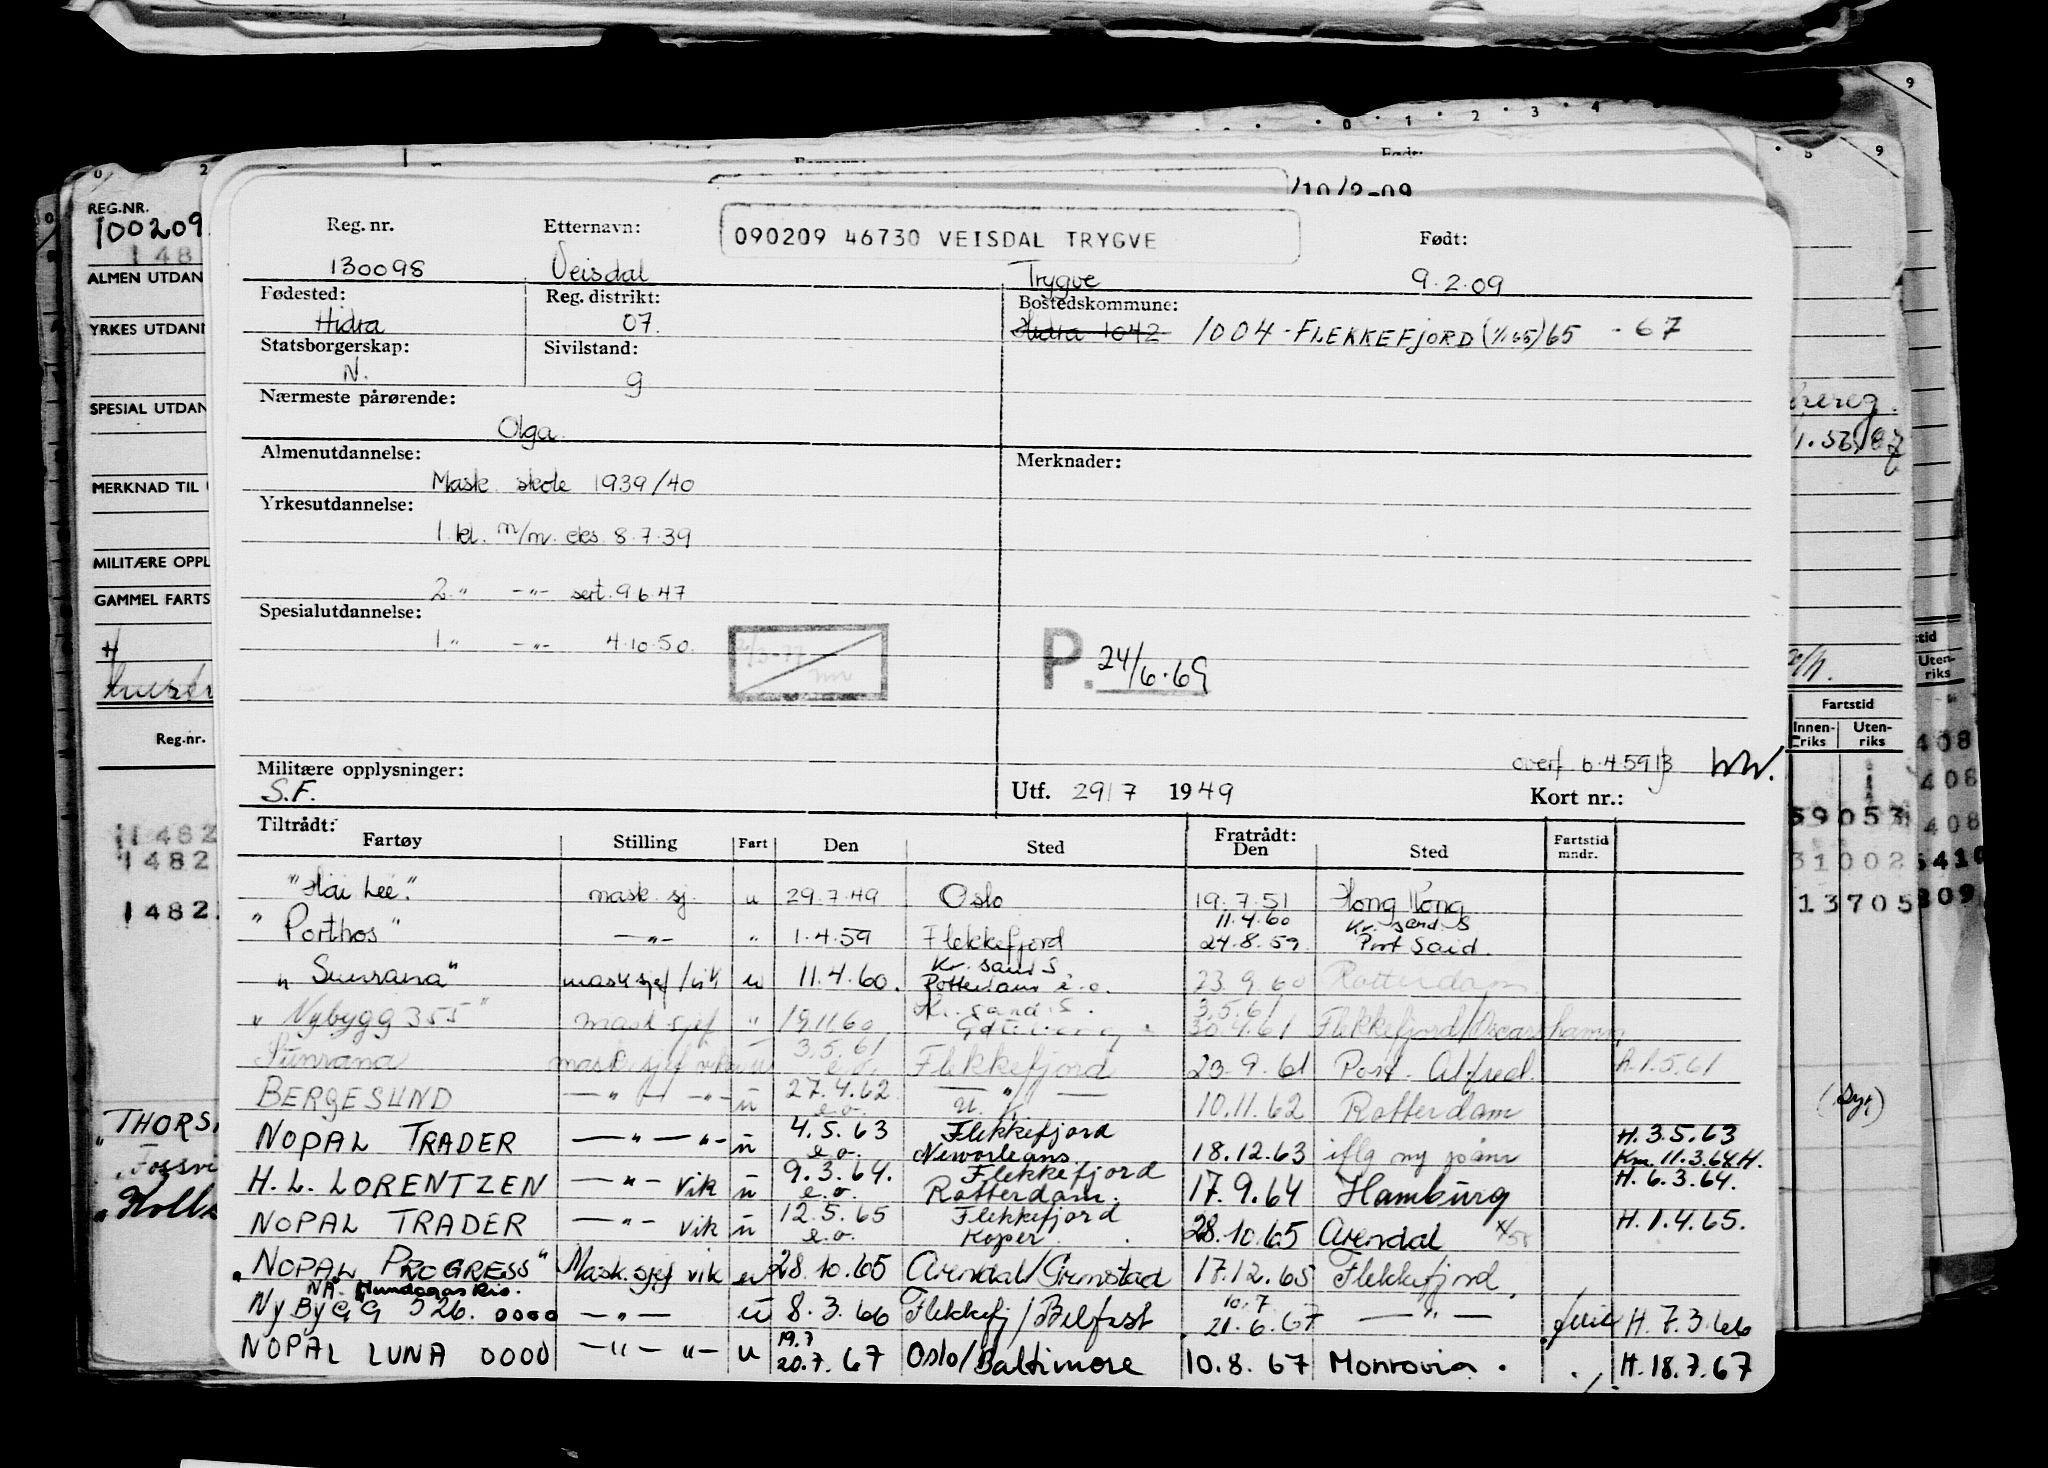 0 1 2 3 4
9
8 9
0 2
Født:
/10/2-09
REG.NR.
100209
148
ALMEN UTDAN
YRKES UTDANN
SPESIAL UTDAN
MERKNAD TIL
MILITÆRE OPPL
GAMMEL FARTS
Reg.nr.
1482
1482
1482
"THORS
Reg. nr. Etternavn: 090209 46730 VEISDAL TRYGVE Født:
130098 Veisdal Trygve 9.2.09
Fødested: Reg. distrikt: Bostedskommune:
Hidra 07. Hidra 1042 1004-FLEKKEFJORD (1/1 65)/65 -67
Statsborgerskap: Sivilstand:
N. g
Nærmeste pårørende:
Olga
Almenutdannelse: Merknader:
Mask. skole 1939/40
Yrkesutdannelse:
1. kl. m/m. eks. 8.7.39
2. " -"- sert. 9.6.47
Spesialutdannelse:
1 " -"- 4.10.50.
P. 24/6.69
overf 6.4.59
Militære opplysninger:
S.F. Utf. 29/7 1949 Kort nr.:
Tiltrådt: Fratrådt:
Fartøy Stilling Fart Den Sted Den Sted Fartstid mndr.
"Hai Lee". mask. sj. u 29.7.49 Oslo 19.7.51 Hong Kong
11.4.60 Kr. sand. S
"Porthos" -"- " 1.4.59 Flekkefjord 24.8.59. Port Said.
Kr. sand S.
"Sunrana" mask sjef/vik u 11.4.60. Rotterdam e.o. 23.9.60 Rotterdam
Kr. sand. S. 3.5.61
"Nybygg 355" mask sjef " 19.11.60 30.4.61 Flekkefjord/Oscarshamn
3.5.61
Sunrana mask. sjef vik u e.o. Flekkefjord 23.9.61 Port Alfred. h.1.5.61
27.4.62
BERGESUND -"- -"- u e.o. -"- 10.11.62 Rotterdam
4.5.63 Flekkefjord H. 3.5.63
NOPAL TRADER -"-"- u e.o. Neworleans 18.12.63 iflg ny påm Km. 11.3.64 H.
9.3.64. Flekkefjord H. 6.3.64.
H. L. LORENTZEN -"- vik u e.o. Rotterdam. 17.9.64 Hamburg
12.5.65 Flekkefjord H. 1.4.65.
NOPAL TRADER -"- vik u e.o. Koper. 28.10.65 Arendal
"NOPAL PROGRESS" Mask. sjef vik u 28.10.65 Arendal/Grimstad 17.12.65 Flekkefjord
10.7
NYBYGG 526. 0000 -"- u 8.3.66 Flekkefj/Belfast 21.6.67 -"- H. 7.3.66
19.7
NOPAL LUNA 0000 -"- "- u 20.7.67 Oslo/Baltimore 10.8.67 Monrovia. H. 18.7.67
Fartstid
Innen-riks Uten-riks
59053
31002
13705
tid
Uten-riks
408
408
408
5410
309